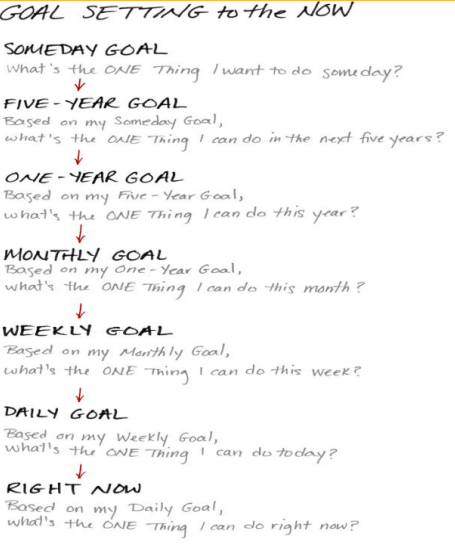 GOAL SETTING to the NOW
SOMEDAY GOAL
What's the ONE Thing I want to do someday?
FIVE-YEAR GOAL
Based on my Someday Goal,
what's the ONE Thing I can do in the next five years?
ONE-YEAR GOAL
Based on my Five-Year Goal,
what's the ONE Thing I can do this year?
MONTHLY GOAL
Based on my One-Year Goal,
what's the ONE Thing I can do this month?
WEEKLY GOAL
Based on my Monthly Goal,
what's the ONE Thing I can do this week?
DAILY GOAL
Based on my Weekly Goal,
what's the ONE Thing I can do today?
RIGHT NOW
Based on my Daily Goal,
what's the ONE Thing I can do right now?